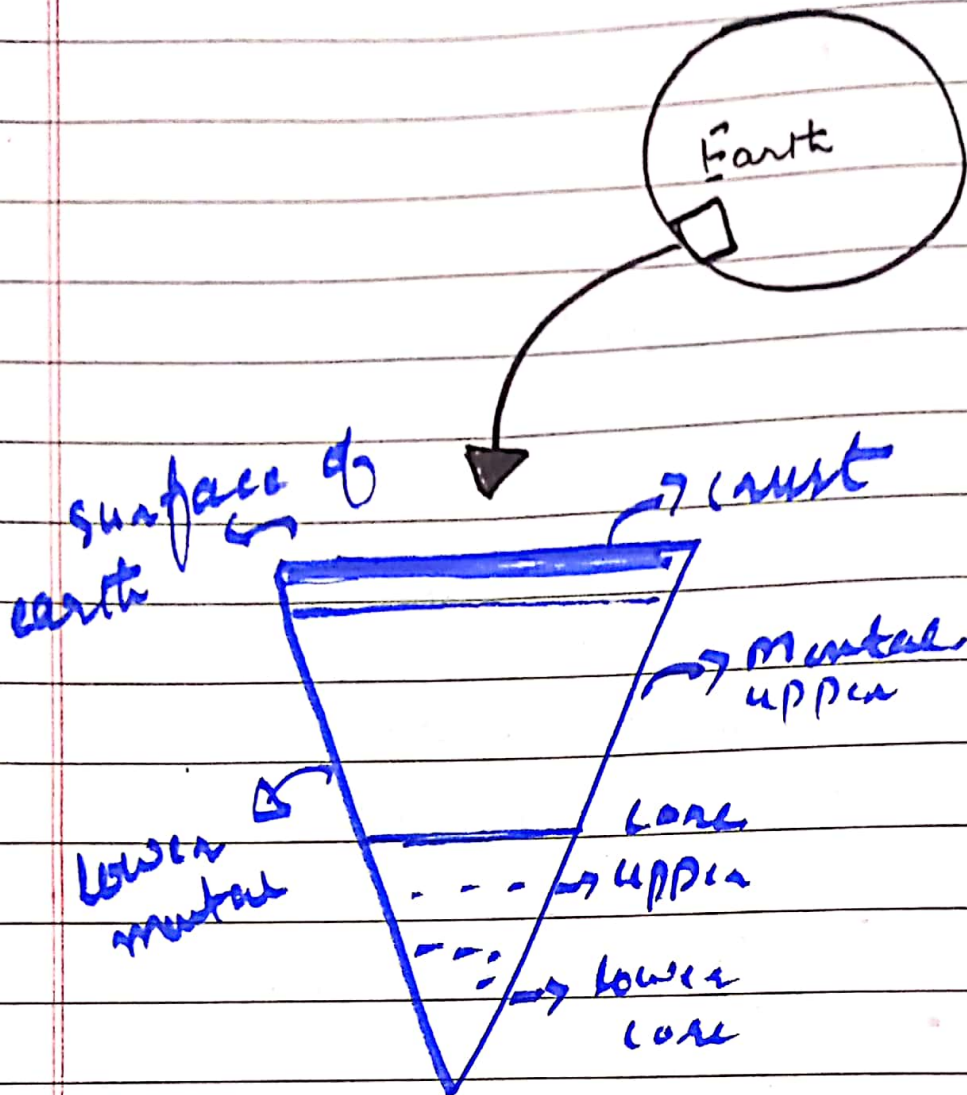 Earth
surface of
earth
crust
Mantal
upper
Lower
mantal
core
upper
Lower
core